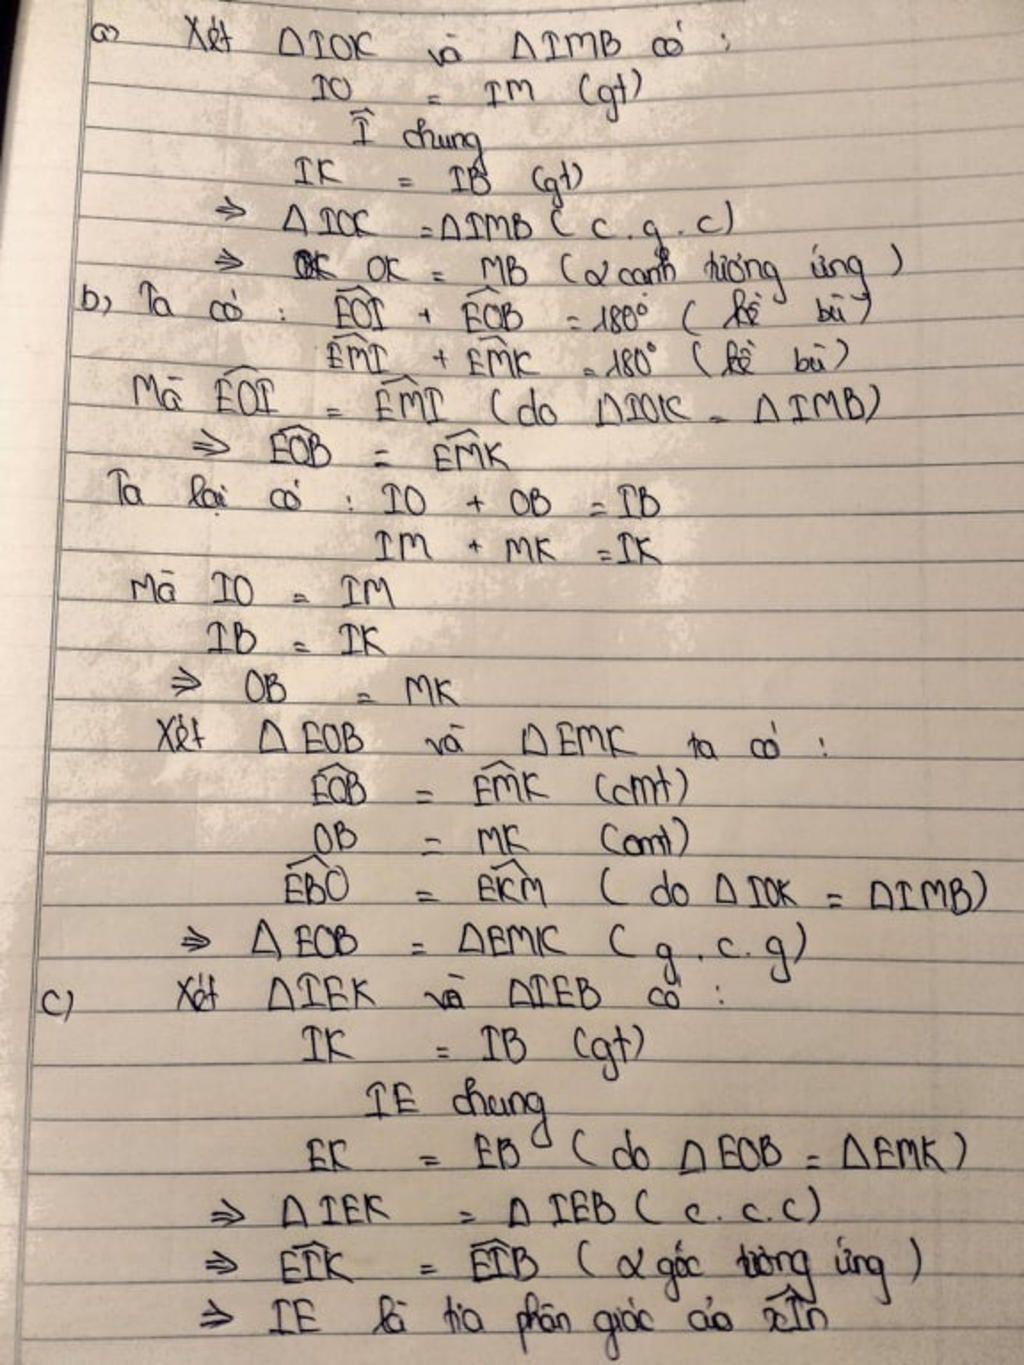 a) Xét ΔIOK và ΔIMB có :
IO = IM (gt)
Î chung
IK = IB (gt)
⇒ ΔIOK = ΔIMB ( c.g.c)
⇒ OK = MB (2 cạnh tương ứng )
b, Ta có : \widehat{EOI} + \widehat{EOB} = 180° ( kề bù)
\widehat{EMI} + \widehat{EMK} = 180° ( kề bù)
Mà \widehat{EOI} = \widehat{EMI} (do ΔIOK = ΔIMB)
⇒ \widehat{EOB} = \widehat{EMK}
Ta lại có : IO + OB = IB
IM + MK = IK
Mà IO = IM
IB = IK
⇒ OB = MK
Xét ΔEOB và ΔEMK ta có :
\widehat{EOB} = \widehat{EMK} (cmt)
OB = MK (cmt)
\widehat{EBO} = \widehat{EKM} ( do ΔIOK = ΔIMB)
⇒ ΔEOB = ΔEMK ( g.c.g)
c) Xét ΔIEK và ΔIEB có :
IK = IB (gt)
IE chung
EK = EB ( do ΔEOB = ΔEMK)
⇒ ΔIEK = ΔIEB ( c.c.c)
⇒ \widehat{EIK} = \widehat{EIB} ( 2 góc tương ứng )
⇒ IE là tia phân giác của \widehat{xIn}